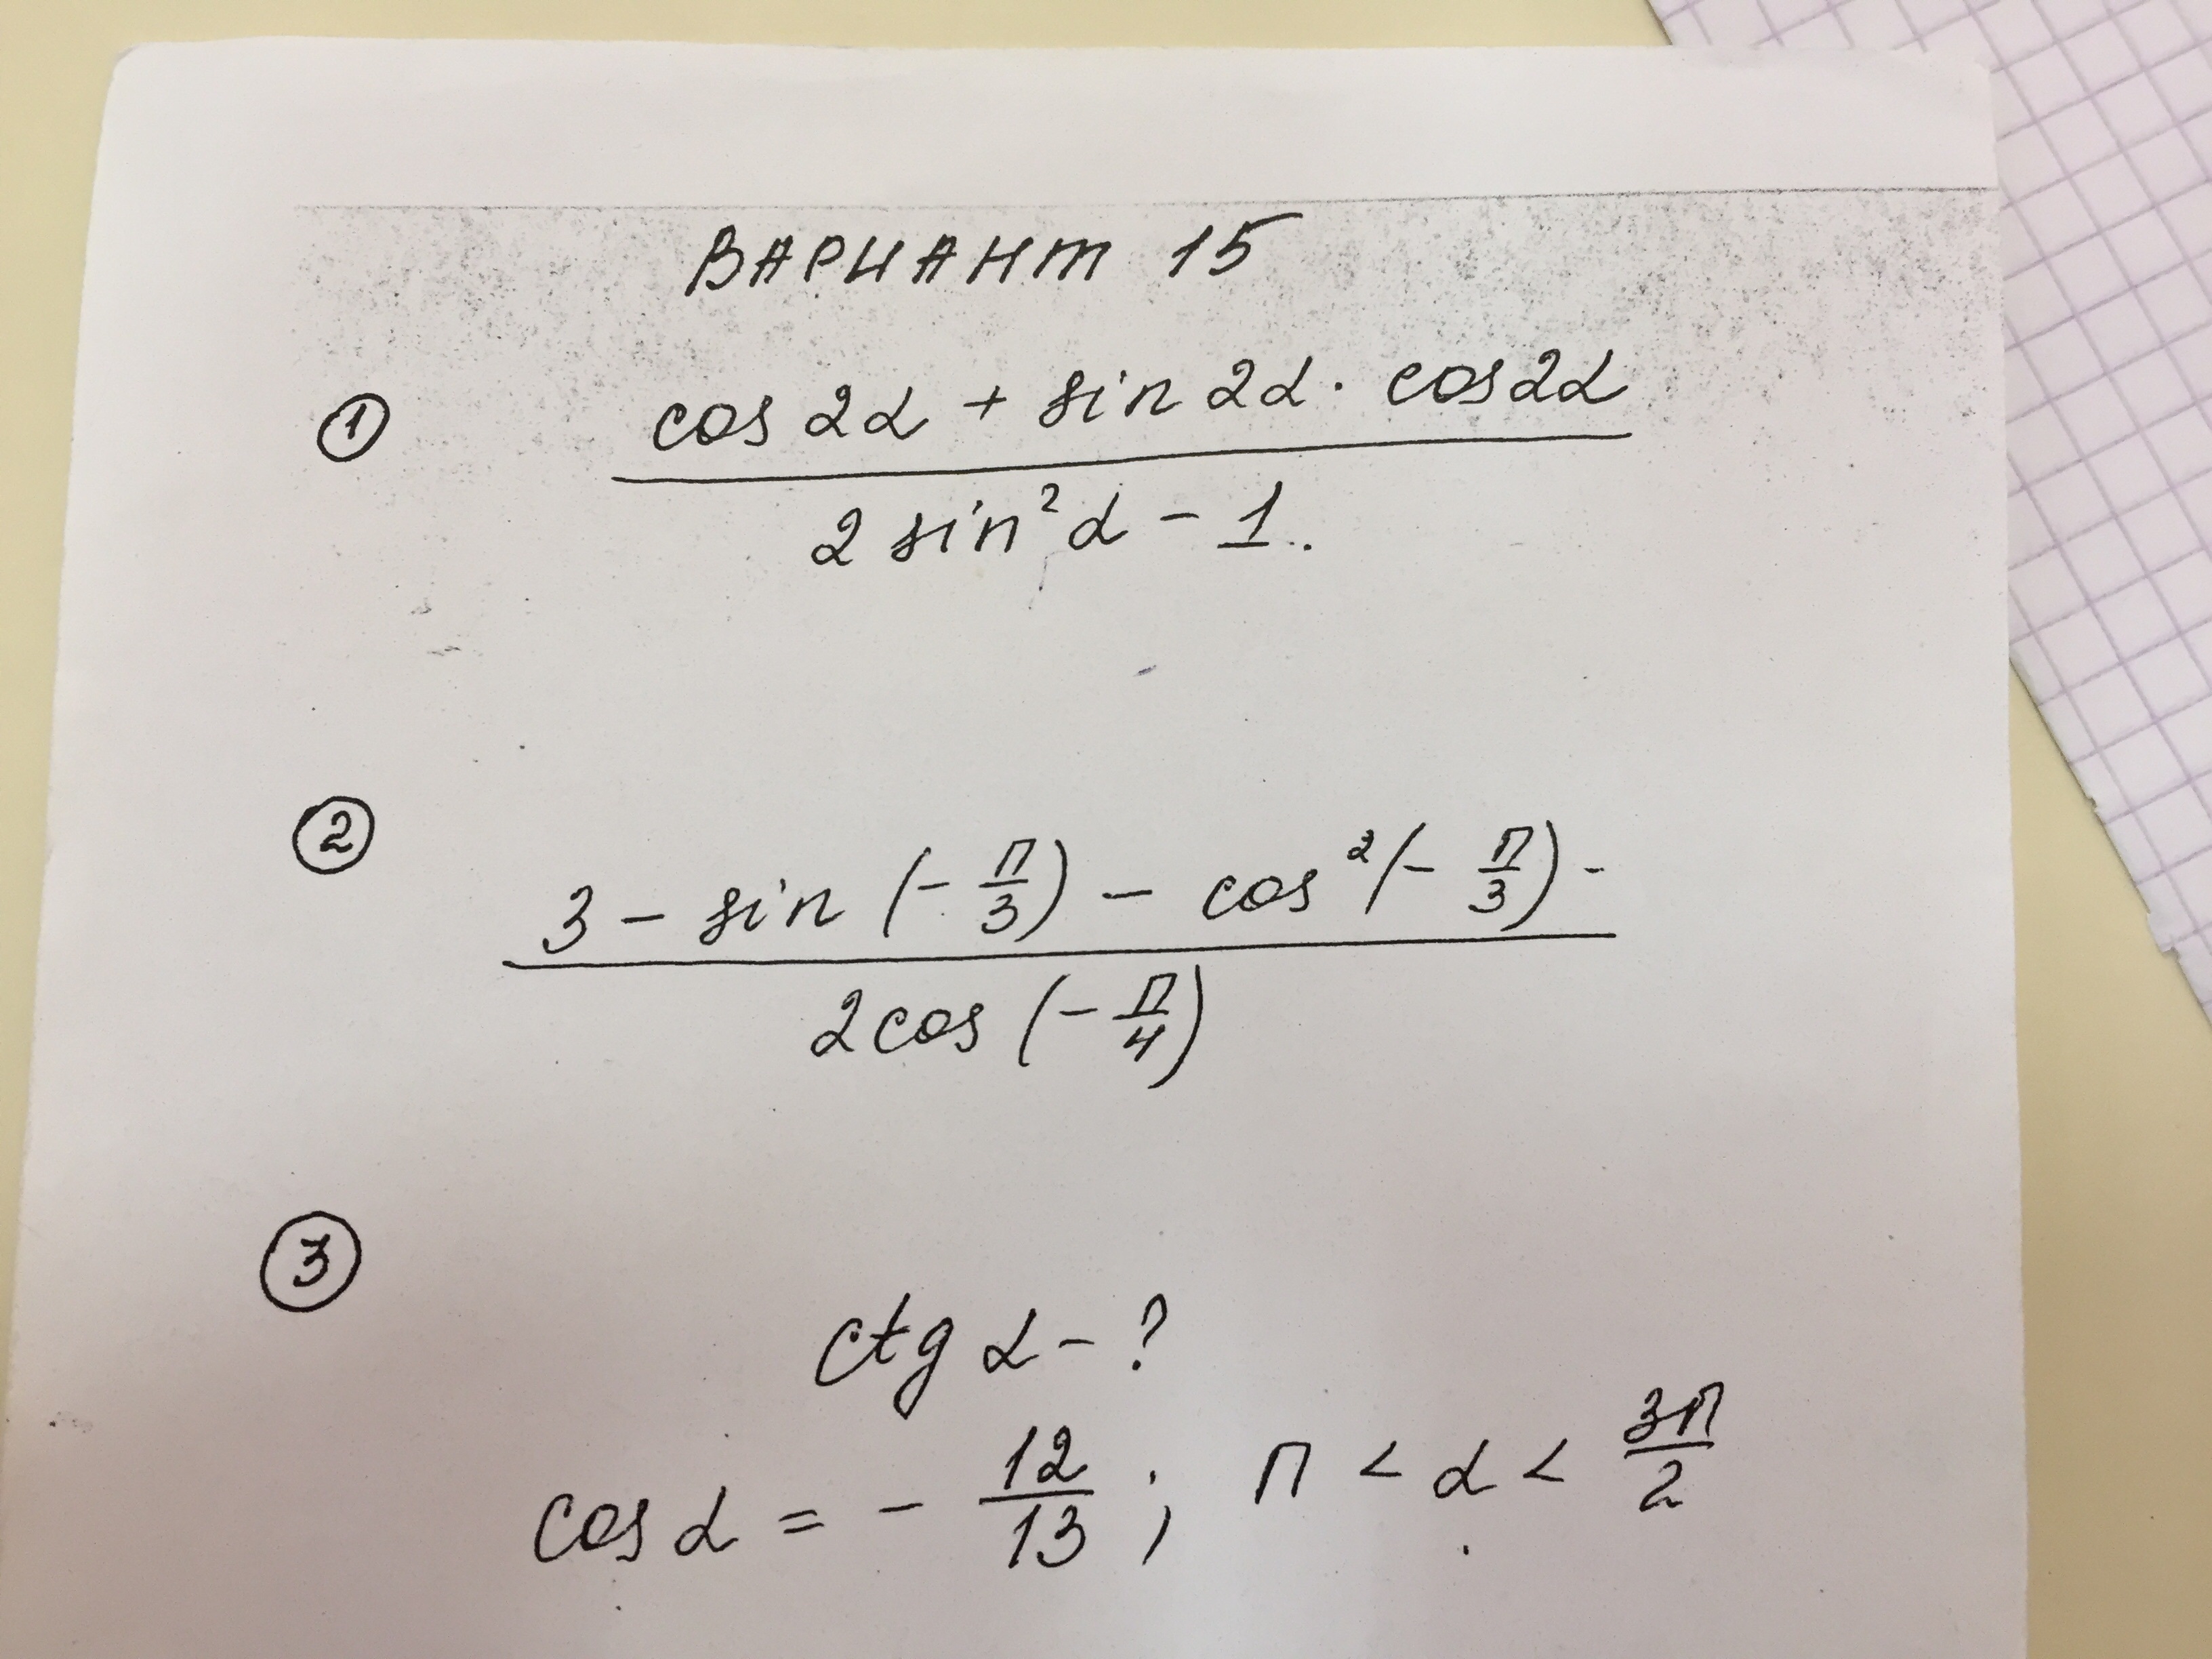 ВАРИАНТ 15
① cos 2α + sin 2α · cos 2α
2 sin² α - 1.
② 3 - sin (- π/3) - cos² (- π/3) -
2 cos (- π/4)
③ ctg α - ?
cos α = - 12/13 ; π < α < 3π/2